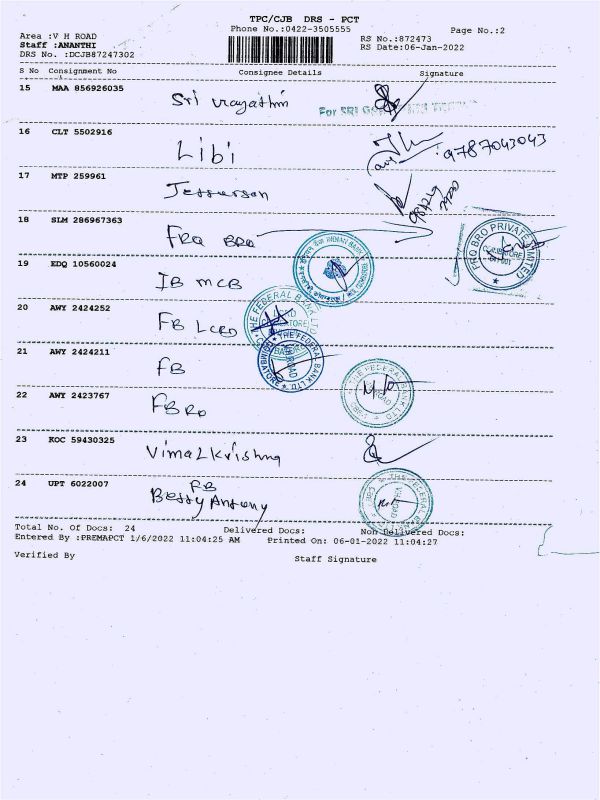 TPC/CJB DRS - PCT
Phone No.:0422-3505555
Page No.:2
Area :V H ROAD
RS No.:872473
Staff :ANANTHI
RS Date:06-Jan-2022
DRS No. :DCJB87247302
S No Consignment No Consignee Details Signature
15 MAA 856926035
For SRI
16 CLT 5502916 Libi 9787043043
17 MTP 259961 Jefferson
18 SLM 286967363 FRO BRO
PRO BRO PRIVATE LIMITED
19 EDQ 10560024 IB MCB
INDIAN BANK
20 AWY 2424252 FB LCRD
THE FEDERAL BANK LTD
21 AWY 2424211 FB
THE FEDERAL BANK LTD
COIMBATORE
22 AWY 2423767 FB RO
THE FEDERAL BANK LTD
23 KOC 59430325 Vimal Krishna
24 UPT 6022007 FB
Bessy Antony
THE FEDERAL
Total No. Of Docs: 24 Delivered Docs: Non Delivered Docs:
Entered By :PREMAPCT 1/6/2022 11:04:25 AM Printed On: 06-01-2022 11:04:27
Verified By Staff Signature